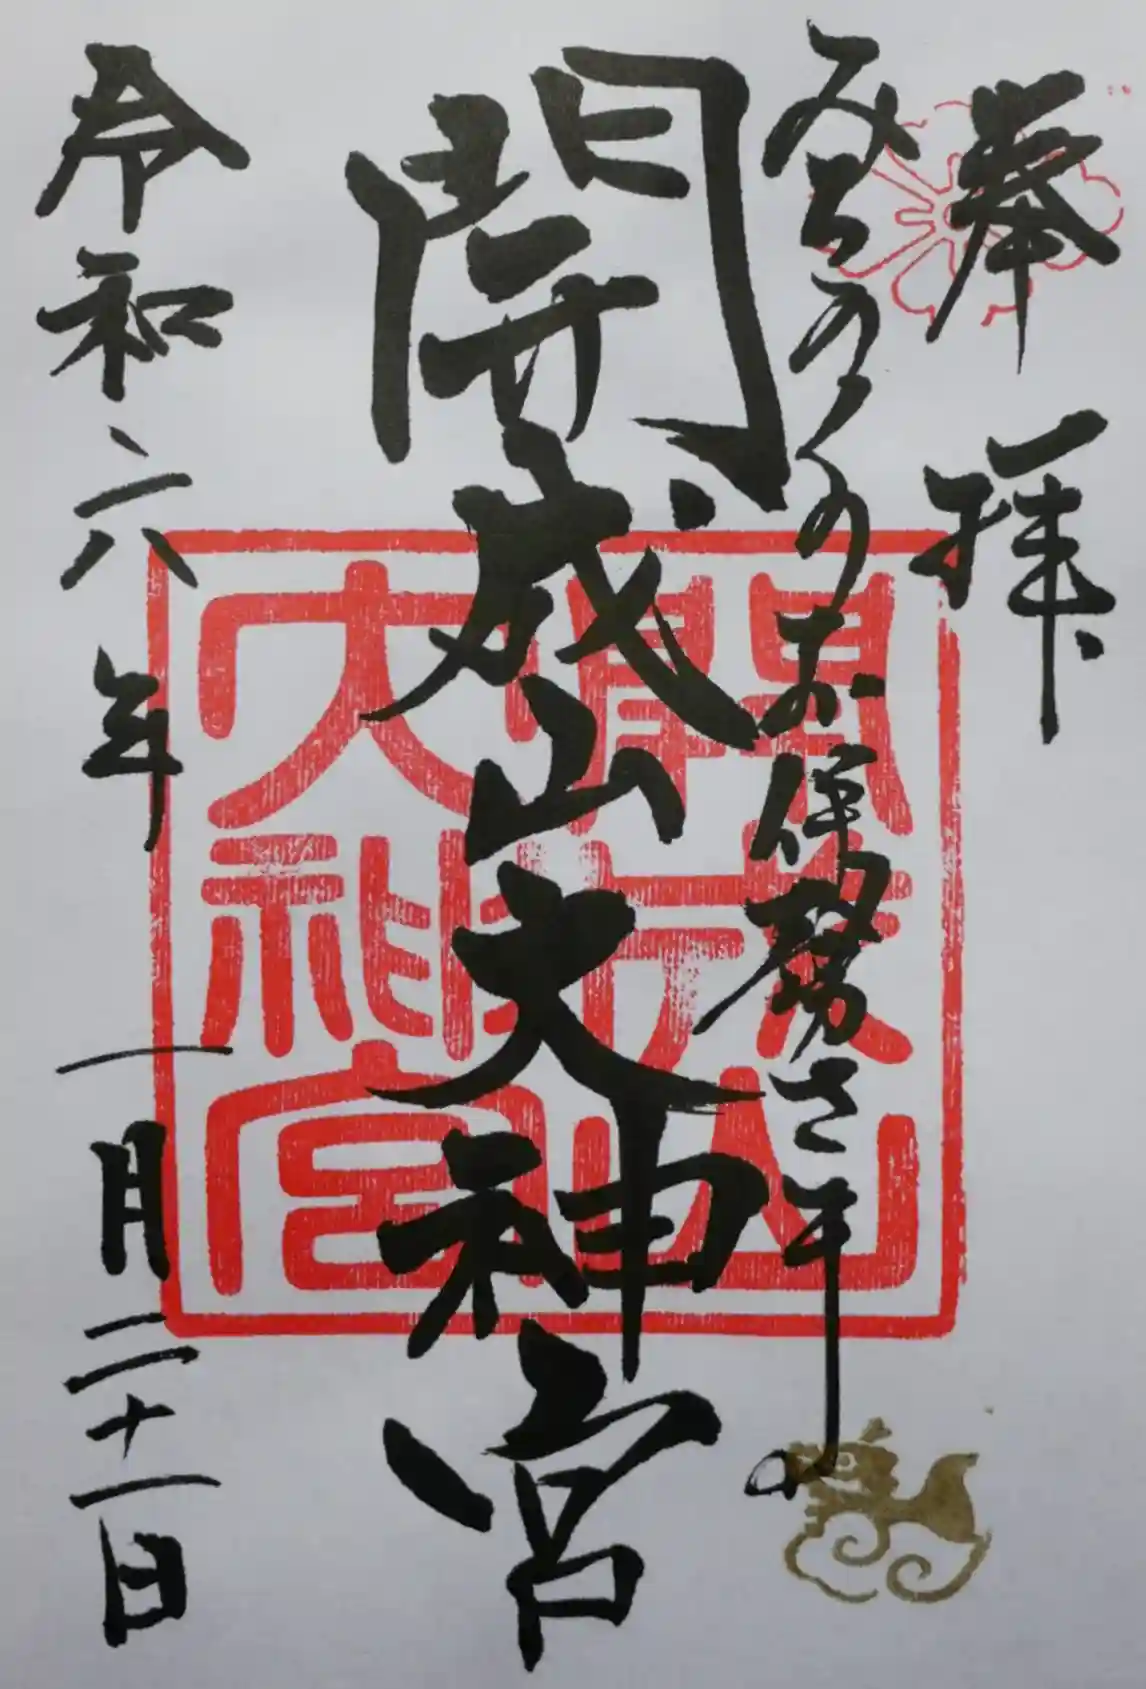 奉拝
みちのくのお伊勢さま
開成山大神宮
令和六年一月二十一日
開成山
大神宮